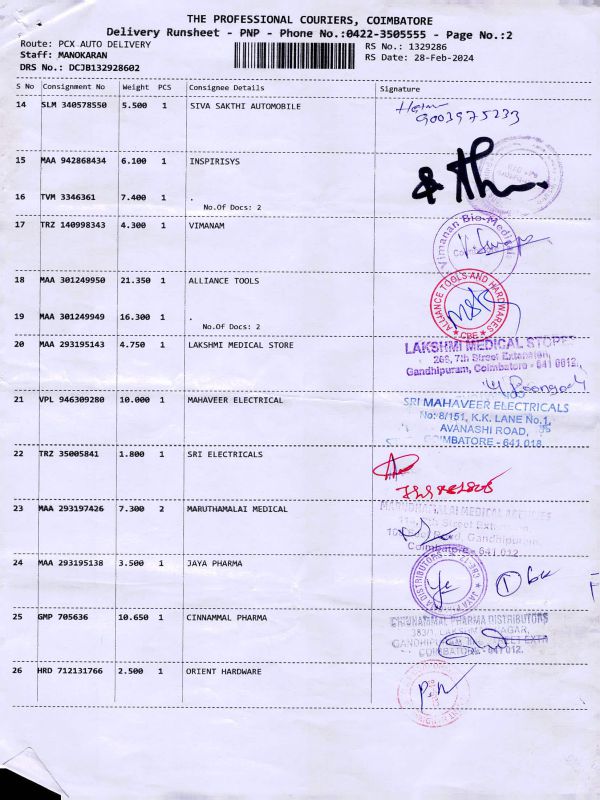 THE PROFESSIONAL COURIERS, COIMBATORE
Delivery Runsheet - PNP - Phone No.:0422-3505555 - Page No.:2
Route: PCX AUTO DELIVERY RS No.: 1329286
Staff: MANOKARAN RS Date: 28-Feb-2024
DRS No.: DCJB132928602
S No Consignment No Weight PCS Consignee Details Signature
14 SLM 340578550 5.500 1 SIVA SAKTHI AUTOMOBILE
9003975233
15 MAA 942868434 6.100 1 INSPIRISYS
16 TVM 3346361 7.400 1 .
No.Of Docs: 2
17 TRZ 140998343 4.300 1 VIMANAM
Vimanan Bio-Medical
18 MAA 301249950 21.350 1 ALLIANCE TOOLS
ALLIANCE TOOLS AND HARDWARES
CBE
19 MAA 301249949 16.300 1 .
No.Of Docs: 2
20 MAA 293195143 4.750 1 LAKSHMI MEDICAL STORE
LAKSHMI MEDICAL STORES
268, 7th Street Extension,
Gandhipuram, Coimbatore - 641 0012.
21 VPL 946309280 10.000 1 MAHAVEER ELECTRICAL
SRI MAHAVEER ELECTRICALS
No: 8/151, K.K. LANE No.1,
AVANASHI ROAD,
COIMBATORE - 641 018.
22 TRZ 35005841 1.800 1 SRI ELECTRICALS
23 MAA 293197426 7.300 2 MARUTHAMALAI MEDICAL
MARUDHAMALAI MEDICAL AGENCIES
Street Extension
Road, Gandhipuram,
Coimbatore - 641 012
24 MAA 293195138 3.500 1 JAYA PHARMA
25 GMP 705636 10.650 1 CINNAMMAL PHARMA
CHINNAMMAL PHARMA DISTRIBUTORS
NAGAR,
GANDHIPURAM STREET EXTN
COIMBATORE - 641 012.
26 HRD 712131766 2.500 1 ORIENT HARDWARE